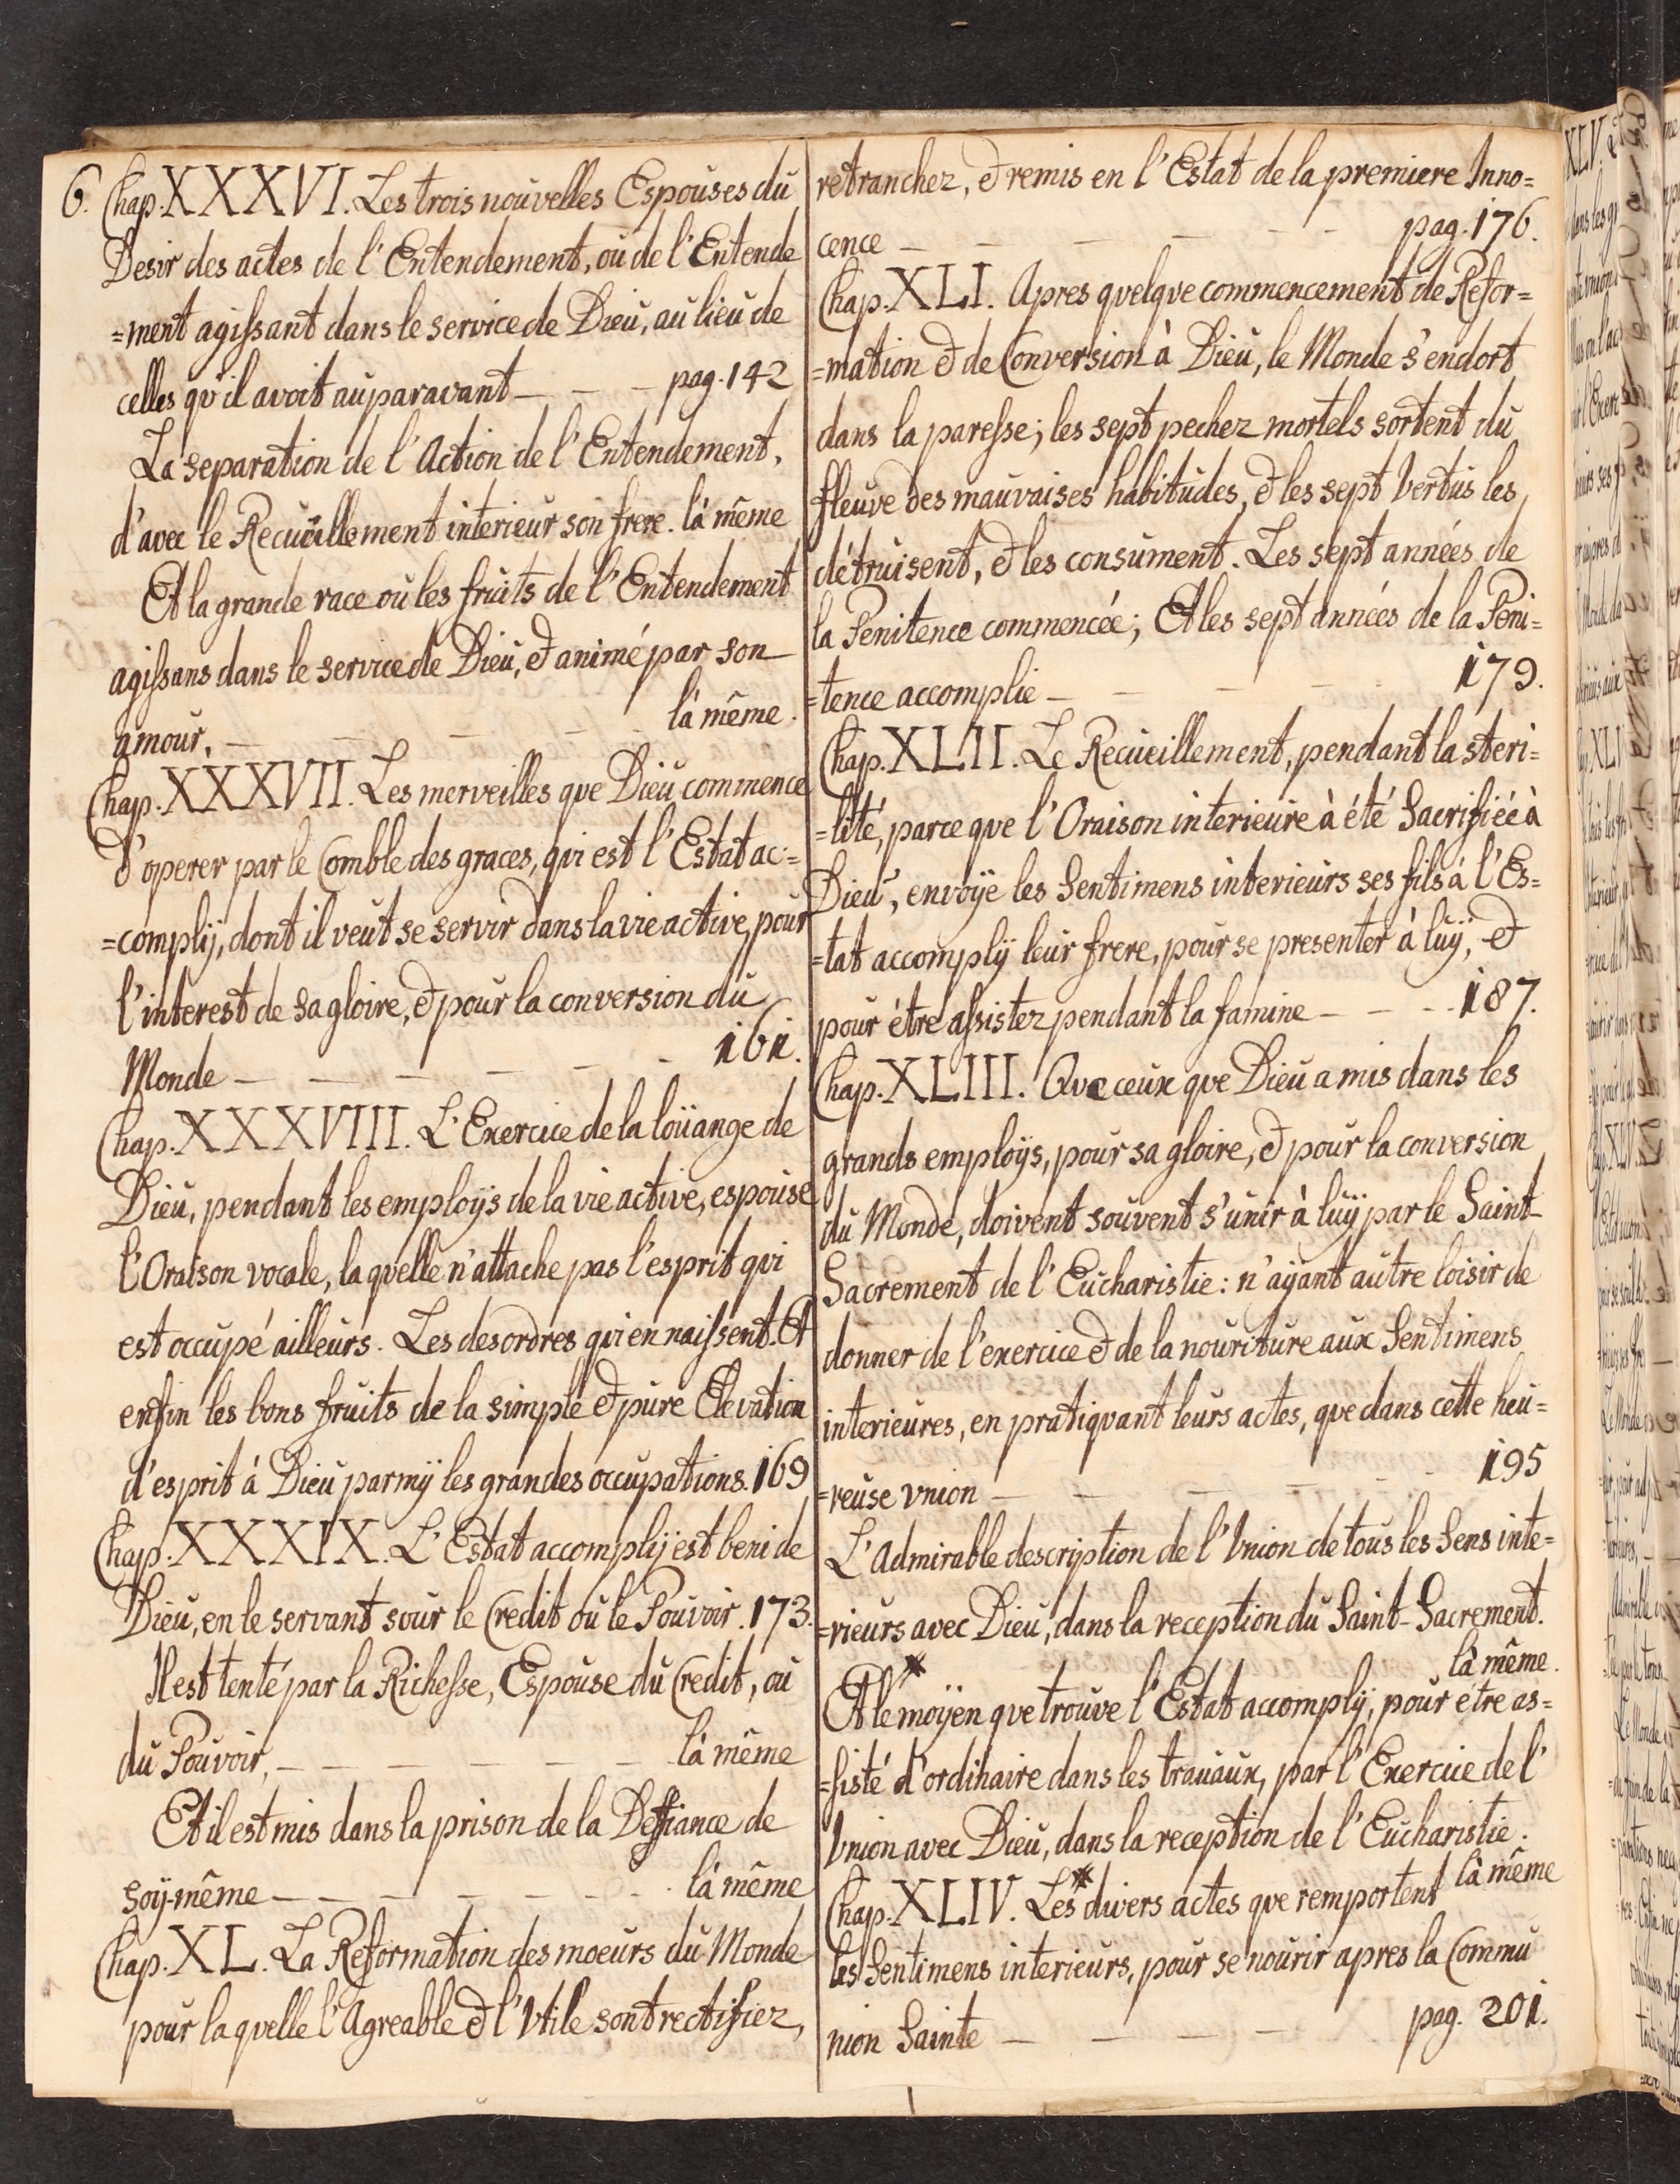 6. Chap. XXXVI. Les trois nouvelles Espouses du
Desir des actes de l'Entendement, ou de l'Entende
=ment agissant dans le service de Dieu, au lieu de
celles qu'il avoit auparavant — — — pag. 142
La separation de l'Action de l'Entendement,
d'avec le Recueillement interieur son frere. là même
Et la grande race ou les fruits de l'Entendement
agissans dans le service de Dieu, & animé par son
amour. — — — — là même.
Chap. XXXVII. Les merveilles que Dieu commence
d'operer par le Comble des graces, qui est l'Estat ac=
=complij, dont il veut se servir dans la vie active, pour
l'interest de sa gloire, & pour la conversion du
Monde — — — — — — 161.
Chap. XXXVIII. L'Exercice de la loüange de
Dieu, pendant les employs de la vie active, espouse
l'Oraison vocale, laquelle n'attache pas l'esprit qui
est occupé ailleurs. Les desordres qui en naissent. Et
enfin les bons fruits de la simple & pure Elevation
d'esprit à Dieu parmÿ les grandes occupations. 169
Chap. XXXIX. L'Estat accomplij est beni de
Dieu, en le servant sour le Credit ou le Pouvoir. 173.
Il est tenté par la Richesse, Espouse du Credit, ou
du Pouvoir, — — — — — — là même
Et il est mis dans la prison de la Deffiance de
soÿ-même — — — — — — là même
Chap. XL. La Reformation des moeurs du Monde
pour laquelle l'Agreable & l'Vtile sont rectifiez,
retranchez, & remis en l'Estat de la premiere Inno=
cence — — — — — — pag. 176.
Chap. XLI. Apres quelque commencement de Refor=
=mation & de Conversion à Dieu, le Monde s'endort
dans la paresse; les sept pechez mortels sortent du
fleuve des mauvaises habitudes, & les sept Vertus les
détruisent, & les consument. Les sept années de
la Penitence commencée; Et les sept années de la Peni=
=tence accomplie — — — — 179.
Chap. XLII. Le Recueillement, pendant la steri=
=lité, parce que l'Oraison interieure à été Sacrifiée à
Dieu, envoÿe les Sentimens interieurs ses fils à l'Es=
=tat accomplÿ leur frere, pour se presenter à luÿ, &
pour être assistez pendant la famine — — — 187.
Chap. XLIII. Que ceux que Dieu a mis dans les
grands employs, pour sa gloire, & pour la conversion
du Monde, doivent souvent s'unir à luÿ par le Saint
Sacrement de l'Eucharistie: n'aÿant autre loisir de
donner de l'exercice & de la nouriture aux Sentimens
interieures, en pratiquant leurs actes, que dans cette heu=
=reuse vnion — — — — — 195
L'Admirable description de l'Vnion de tous les Sens inte=
=rieurs avec Dieu, dans la reception du Saint-Sacrement.
là même.
Et le moÿen que trouve l'Estat accomplÿ, pour etre as=
=sisté d'ordinaire dans les travaux, par l'Exercice de l'
Vnion avec Dieu, dans la reception de l'Eucharistie.
là même
Chap. XLIV. Les divers actes que remportent
les Sentimens interieurs, pour se nourir apres la Commu
nion Sainte — — — — pag. 201.